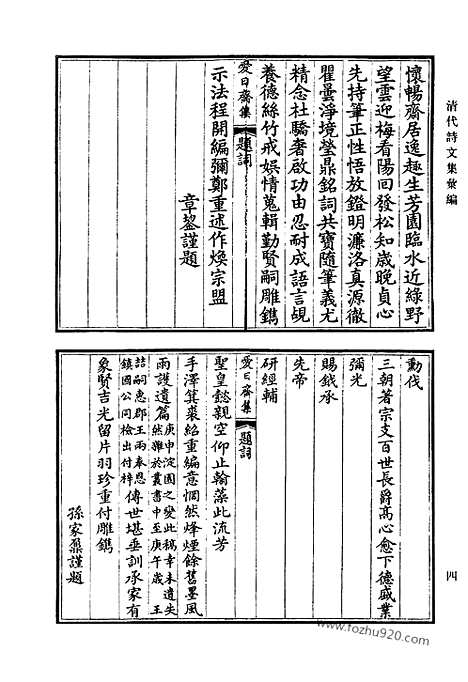 清代詩文集彙編
懷暢齋居逸趣生芳園臨水近綠野
望雲迎梅看陽回發松知歲晚貞心
先持筆正性悟放鐙明濂洛真源徹
瞿曇淨境瑩鼎銘詞共寶隨筆義尤
精念杜驕奢啟功由忍耐成語言覘
養德絲竹戒娛情蒐輯勤賢嗣雕鐫
愛日齋集 題詞
示法程開編彌鄭重述作煥宗盟
章鋆謹題
勳伐
三朝著宗支百世長爵高心愈下德盛業
彌光
賜鉞承
先帝
研經輔
愛日齋集 題詞
聖皇懿親空仰止翰藻此流芳
手澤箕裘紹重編意惘然烽煙餘舊墨風
雨護遺篇庚申淀園之變此稿幸未遺失
然雜於叢書中至庚午歲王
喆嗣惠郡王兩奉恩
鎮國公同檢出付梓傳世堪垂訓承家有
象賢吉光留片羽珍重付雕鐫
孫家鼐謹題
四
www.fozhu920.com